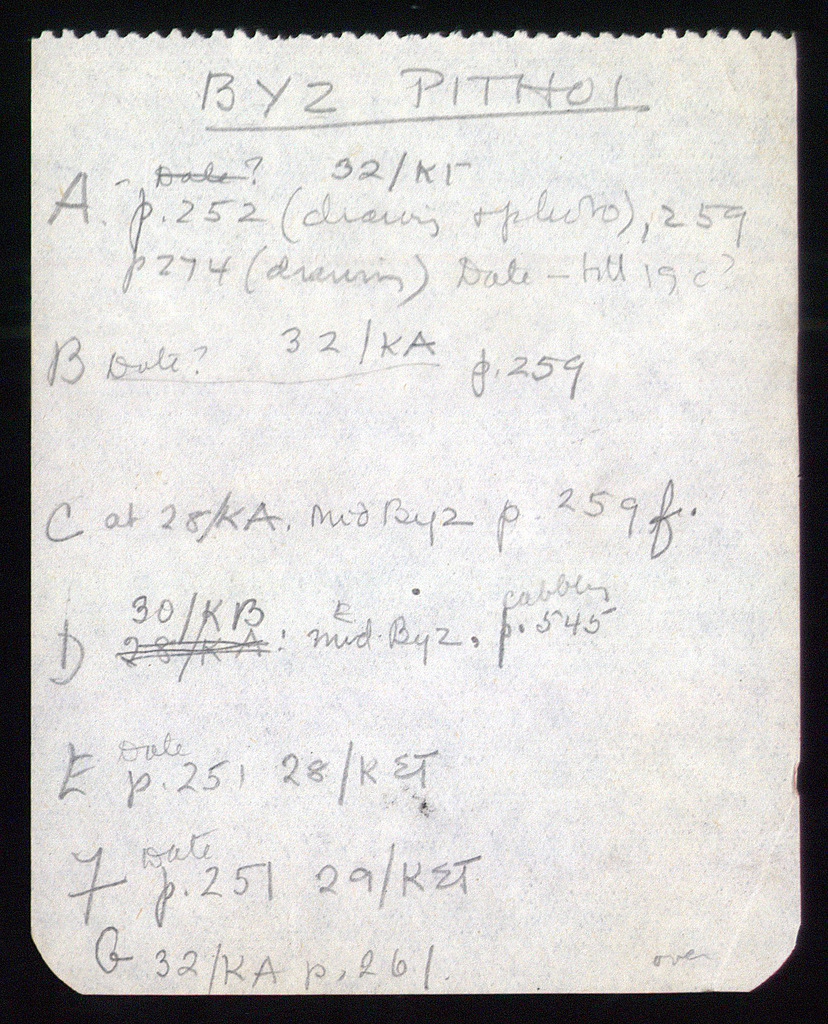 BYZ PITHOI
A. - Date? 32/KΓ
p.252 (drawing + photo), 259
p274 (drawing) Date - till 19 c?
B Date? 32/KA p.259
C at 28/KA. mid Byz p. 259 f.
30/KB
D 28/KA: mid. Byz. p. 545
Date
E p.251 28/KΣT
Date
F p.251 29/KΣT
G 32/KA p.261.
over